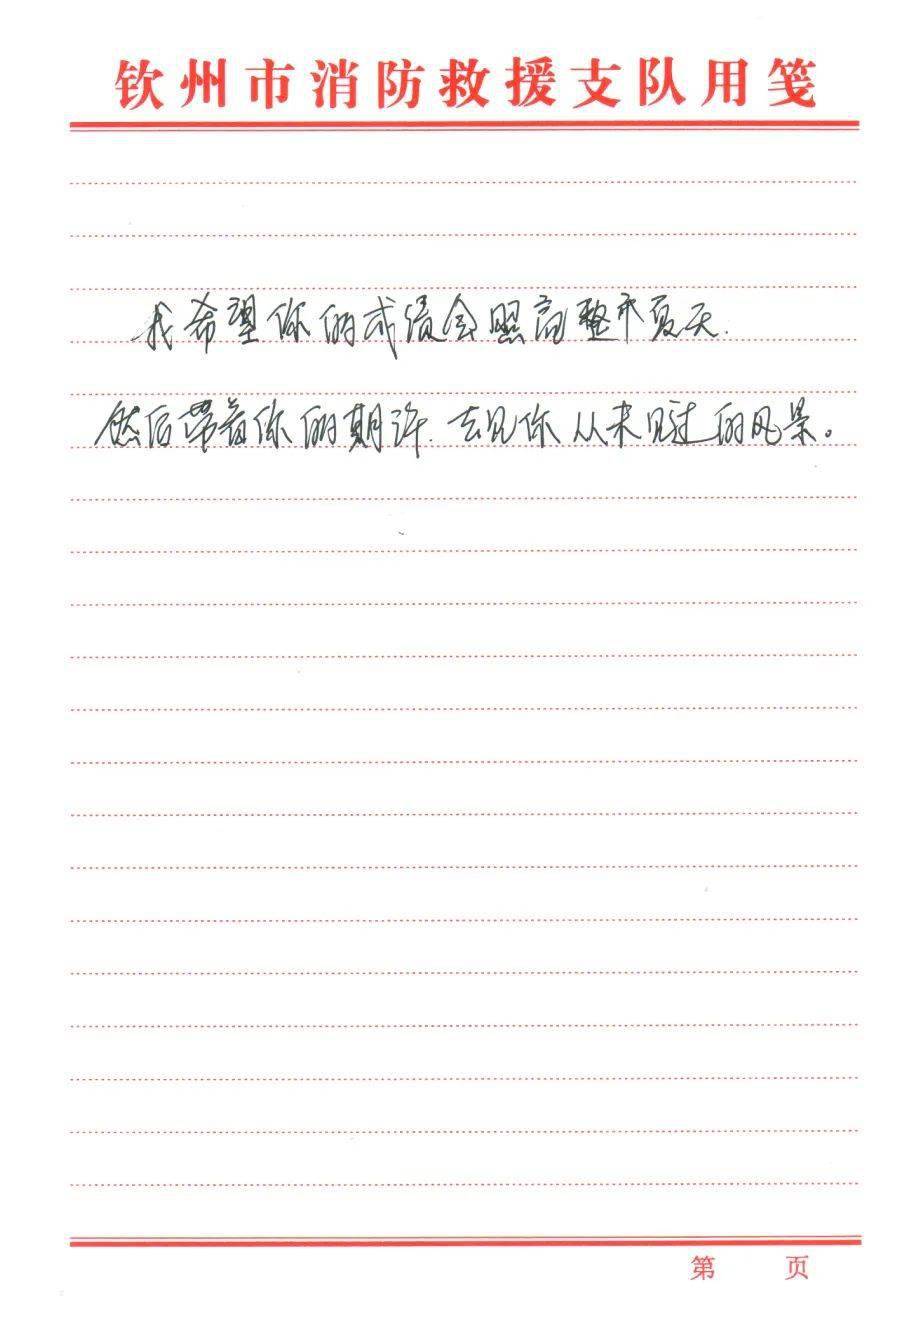 钦州市消防救援支队用笺
我希望你的成绩会照亮整个夏天.
然后带着你的期许.去见你从未见过的风景。
第 页